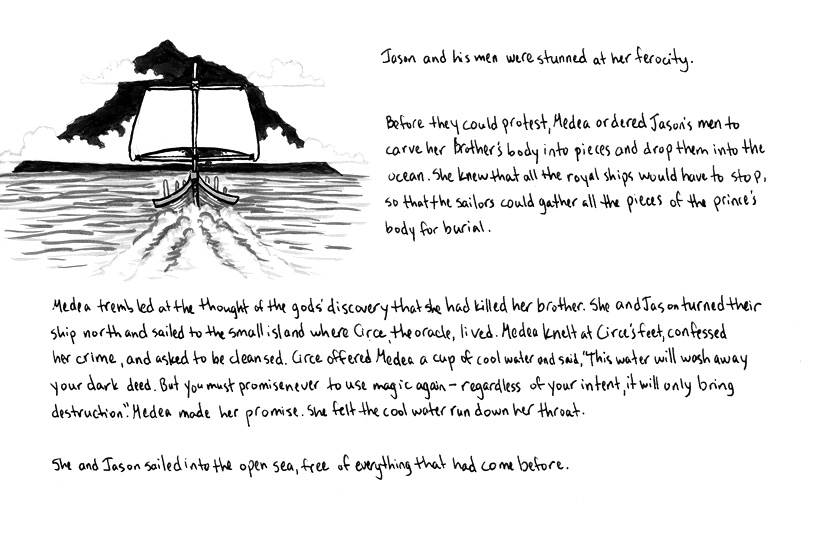 Jason and his men were stunned at her ferocity.
Before they could protest, Medea ordered Jason's men to
carve her brother's body into pieces and drop them into the
ocean. She knew that all the royal ships would have to stop,
so that the sailors could gather all the pieces of the prince's
body for burial.
Medea trembled at the thought of the gods' discovery that she had killed her brother. She and Jason turned their
ship north and sailed to the small island where Circe, the oracle, lived. Medea knelt at Circe's feet, confessed
her crime, and asked to be cleansed. Circe offered Medea a cup of cool water and said, "This water will wash away
your dark deed. But you must promise never to use magic again - regardless of your intent, it will only bring
destruction." Medea made her promise. She felt the cool water run down her throat.
She and Jason sailed into the open sea, free of everything that had come before.